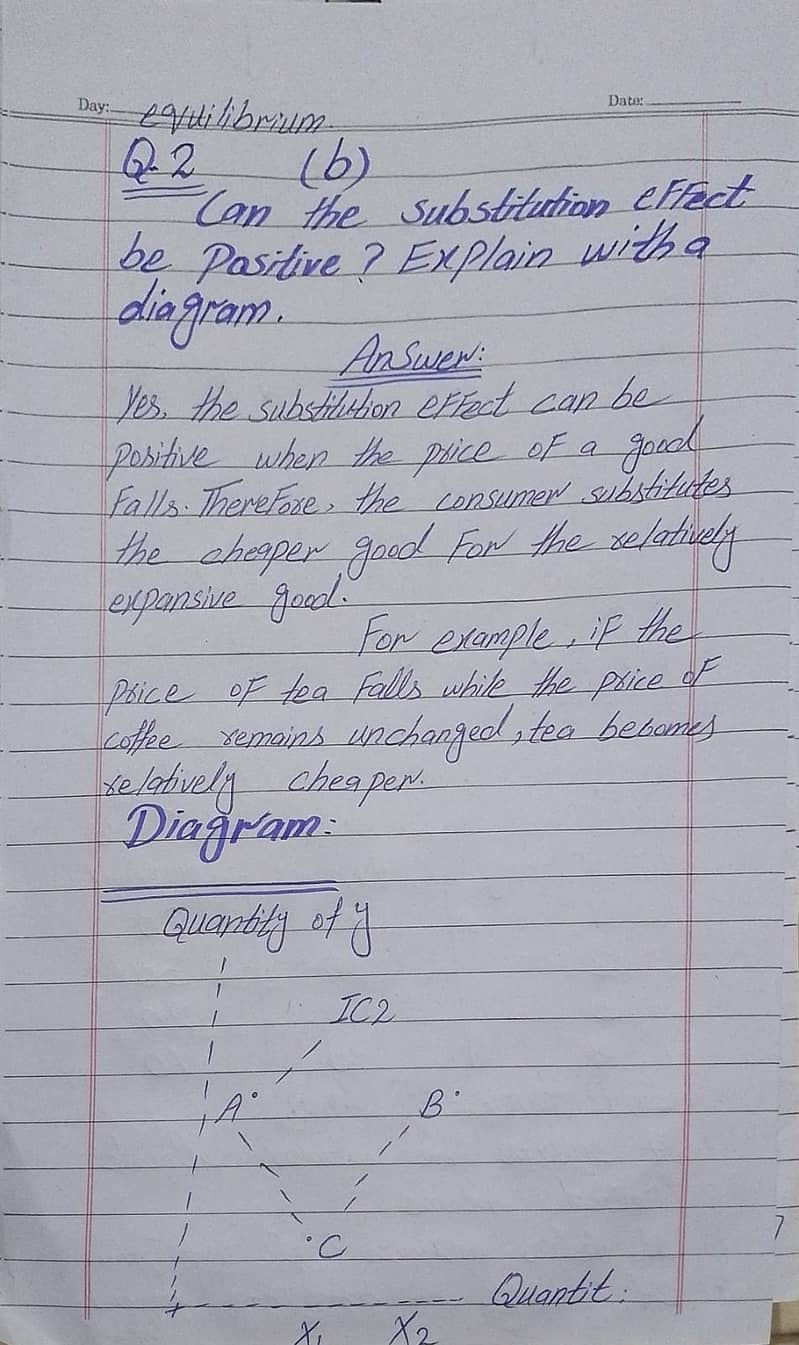 Day:
Date:
equilibrium.
Q.2 (b)
Can the substitution effect
be Positive? Explain with a
diagram.
Answer:
Yes, the substitution effect can be
positive when the price of a good
Falls. Therefore, the consumer substitutes
the cheaper good For the relatively
expansive good.
For example, if the
price of tea Falls while the price of
coffee remains unchanged, tea becomes
relatively cheaper.
Diagram:
Quantity of y
IC2
A
B
C
Quantit.
X1 X2